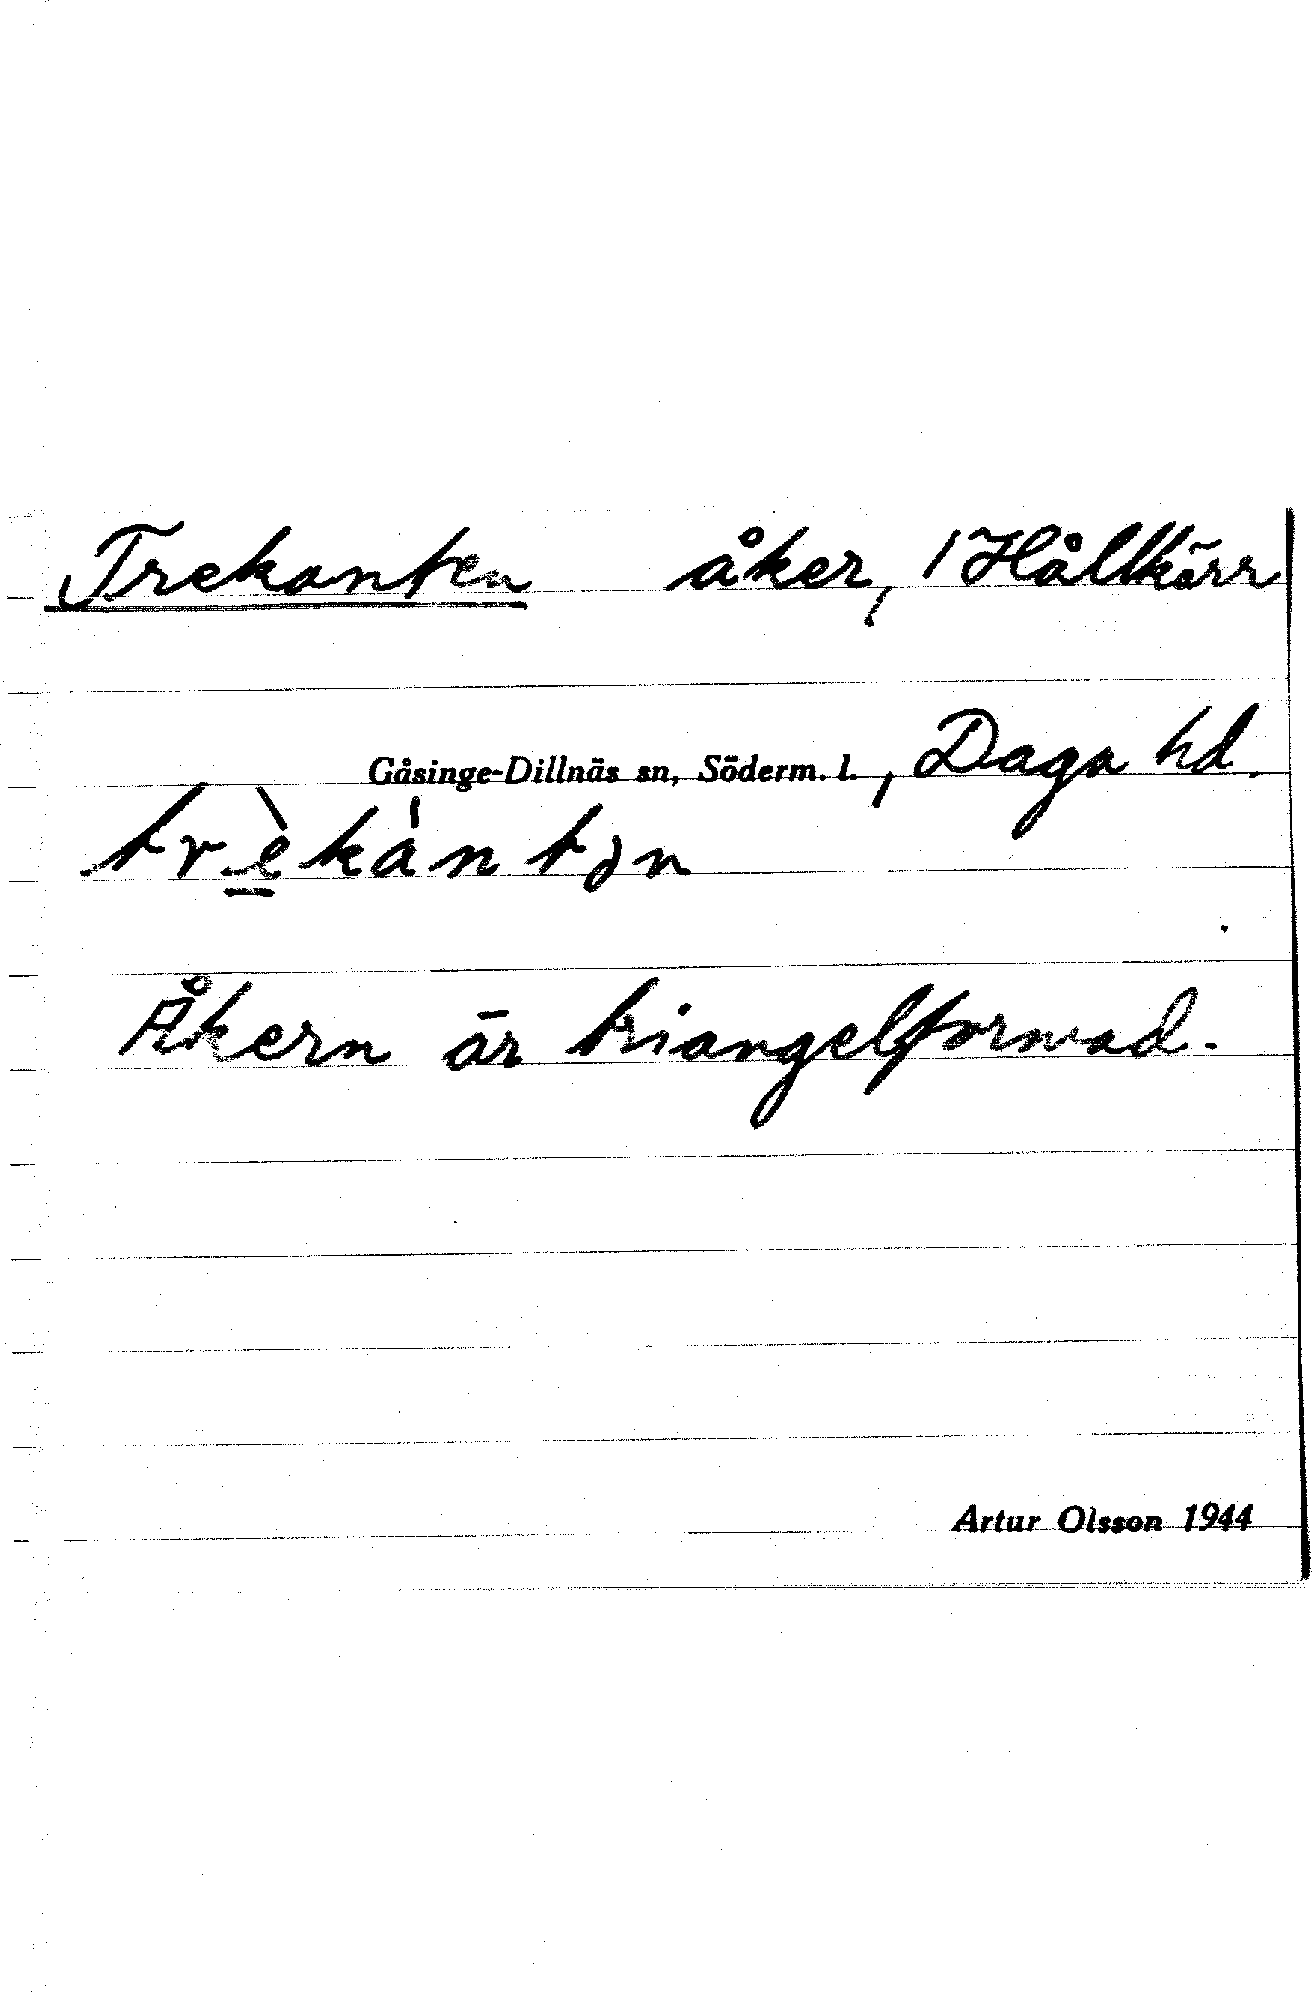 Trekanten åker, / Hållkärr
Gåsinge-Dillnäs sn, Söderm. l., Daga hd.
trè̲kántən
Åkern är triangelformad.
Artur Olsson 1944